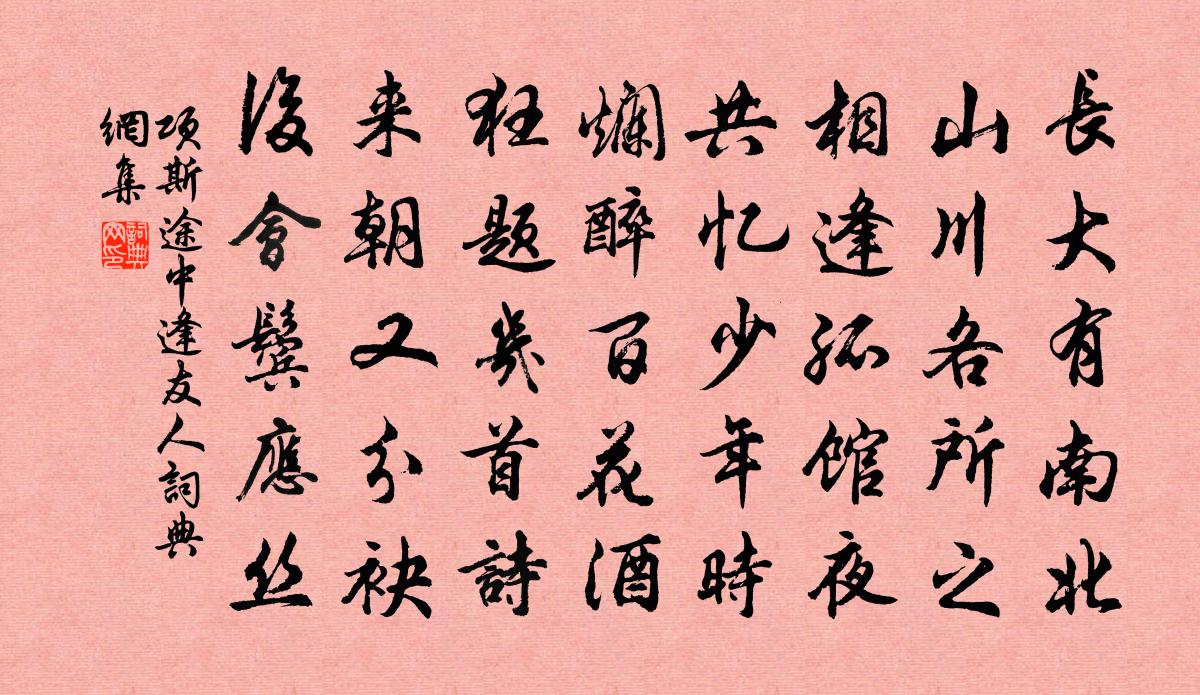 長大有南北
山川各所之
相逢孤館夜
共忆少年時
爛醉百花酒
狂题幾首詩
来朝又分袂
後會鬢應丝
项斯途中逢友人詞典
網集
詞典
网印